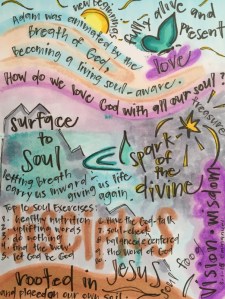 new beginnings
Adam was animated by the
Breath of God,
Becoming a living soul-aware.
fully alive and
Present
love
How do we love God with all our soul?
treasure
surface
to
Soul
letting Breath
carry us inward - give us life
giving again.
spark
of the
divine
Vision+wisdom
Top 10 Soul Exercises:
1. healthy nutrition
2. uplifting words
3. do nothing
4. find the 'wow'
5. let God be God
6. have the God-talk
7. soul-check
8. balanced+centered
9. the word of God
10. Jesus
soul food
rooted in
and placed on our own soul